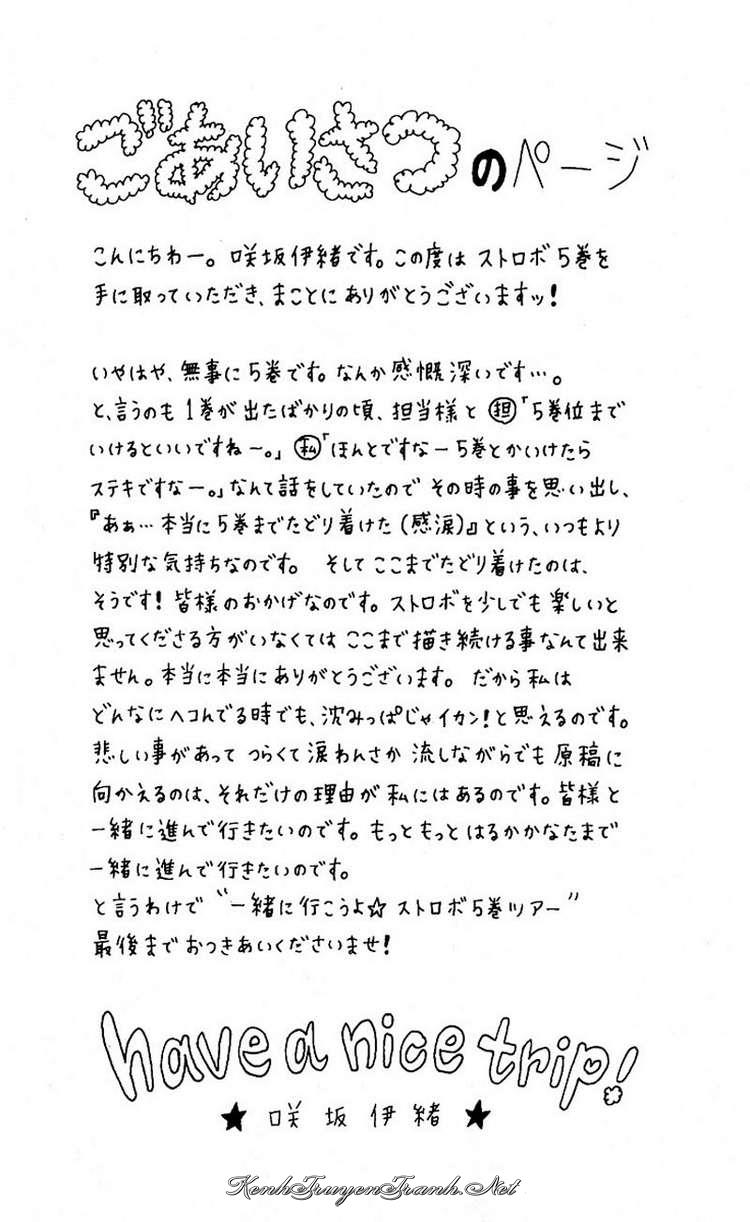 ごあいさつのページ
こんにちわー。咲坂伊緒です。この度は ストロボ5巻を
手に取っていただき、まことに ありがとうございますッ!
いやはや、無事に5巻です。なんか感慨深いです…。
と、言うのも 1巻が 出たばかりの頃、担当様と 担「5巻位まで
いけるといいですねー。」 私「ほんとですなー5巻とかいけたら
ステキですなー。」なんて話をしていたので その時の事を思い出し、
『あぁ…本当に5巻までたどり着けた(感涙)』という、いつもより
特別な気持ちなのです。 そして ここまでたどり着けたのは、
そうです! 皆様のおかげなのです。ストロボを少しでも 楽しいと
思ってくださる方がいなくては ここまで描き続ける事なんて出来
ません。本当に本当にありがとうございます。 だから私は
どんなにヘコんでる時でも、沈みっぱじゃイカン!と思えるのです。
悲しい事があって つらくて涙わんさか 流しながらでも 原稿に
向かえるのは、それだけの理由が 私にはあるのです。皆様と
一緒に進んで行きたいのです。もっともっと はるかかなたまで
一緒に進んで行きたいのです。
と言うわけで “一緒に行こうよ☆ ストロボ5巻ツアー”
最後まで おつきあいくださいませ!
have a nice trip!
★ 咲坂伊緒 ★
KenhTruyenTranh.Net